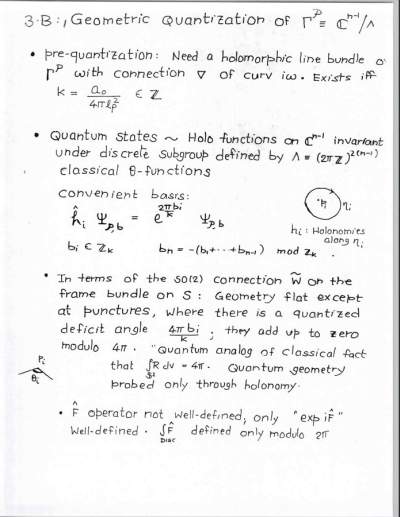 3.B., Geometric Quantization of Γ^P ≡ ℂ^{n-1}/Λ
• pre-quantization: Need a holomorphic line bundle o
Γ^P with connection ∇ of curv iω. Exists iff
k = a₀/4πℓ_P² ∈ ℤ
• Quantum states ~ Holo functions on ℂ^{n-1} invariant
under discrete subgroup defined by Λ = (2πℤ)^{2(n-1)}
classical θ-functions
convenient basis:
ĥ_i Ψ_{P,b} = e^{2πb_i/k} Ψ_{P,b}
η_i
h_i : Holonomies
along η_i
b_i ∈ ℤ_k b_n = -(b_1+··+b_{n-1}) mod ℤ_k .
• In terms of the SO(2) connection W̃ on the
frame bundle on S : Geometry flat except
at punctures, where there is a quantized
deficit angle 4πb_i/k ; they add up to zero
modulo 4π . "Quantum analog of classical fact
that ∫_{S²} R dv = 4π . Quantum geometry
probed only through holonomy.
P_i
θ_i
• F̂ operator not well-defined, only "exp iF̂"
Well-defined . ∫_{DISC} F̂ defined only modulo 2π